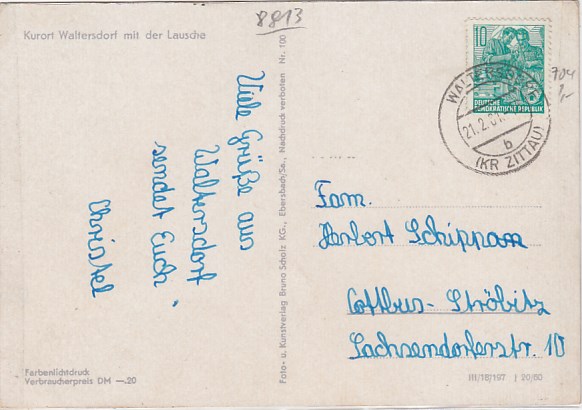 8813
Kurort Waltersdorf mit der Lausche
Viele Grüße aus
Waltersdorf
sendet Euch
Christel
Farbenlichtdruck
Verbraucherpreis DM —.20
Foto- u. Kunstverlag Bruno Scholz KG., Ebersbach/Sa., Nachdruck verboten Nr. 100
10
DEUTSCHE
DEMOKRATISCHE REPUBLIK
21.2.61
b
(KR ZITTAU)
704
Fam.
Herbert Schippan
Cottbus-Ströbitz
Sachsendorferstr. 10
III/18/197 J 20/60